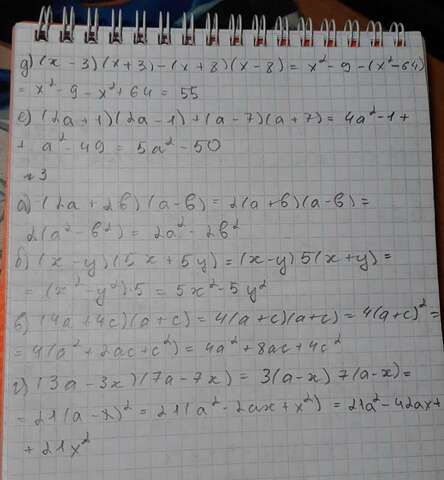 д) (x - 3)(x + 3) - (x + 8)(x - 8) = x² - 9 - (x² - 64)
= x² - 9 - x² + 64 = 55
е) (2a + 1)(2a - 1) + (a - 7)(a + 7) = 4a² - 1 +
+ a² - 49 = 5a² - 50
№3
а) (2a + 2в)(a - в) = 2(a + в)(a - в) =
2(a² - в²) = 2a² - 2в²
б) (x - y)(5x + 5y) = (x - y) 5(x + y) =
= (x² - y²)·5 = 5x² - 5y²
в) (4a + 4c)(a + c) = 4(a + c)(a + c) = 4(a + c)² =
= 4(a² + 2ac + c²) = 4a² + 8ac + 4c²
г) (3a - 3x)(7a - 7x) = 3(a - x) 7(a - x) =
= 21(a - x)² = 21(a² - 2ax + x²) = 21a² - 42ax +
+ 21x²